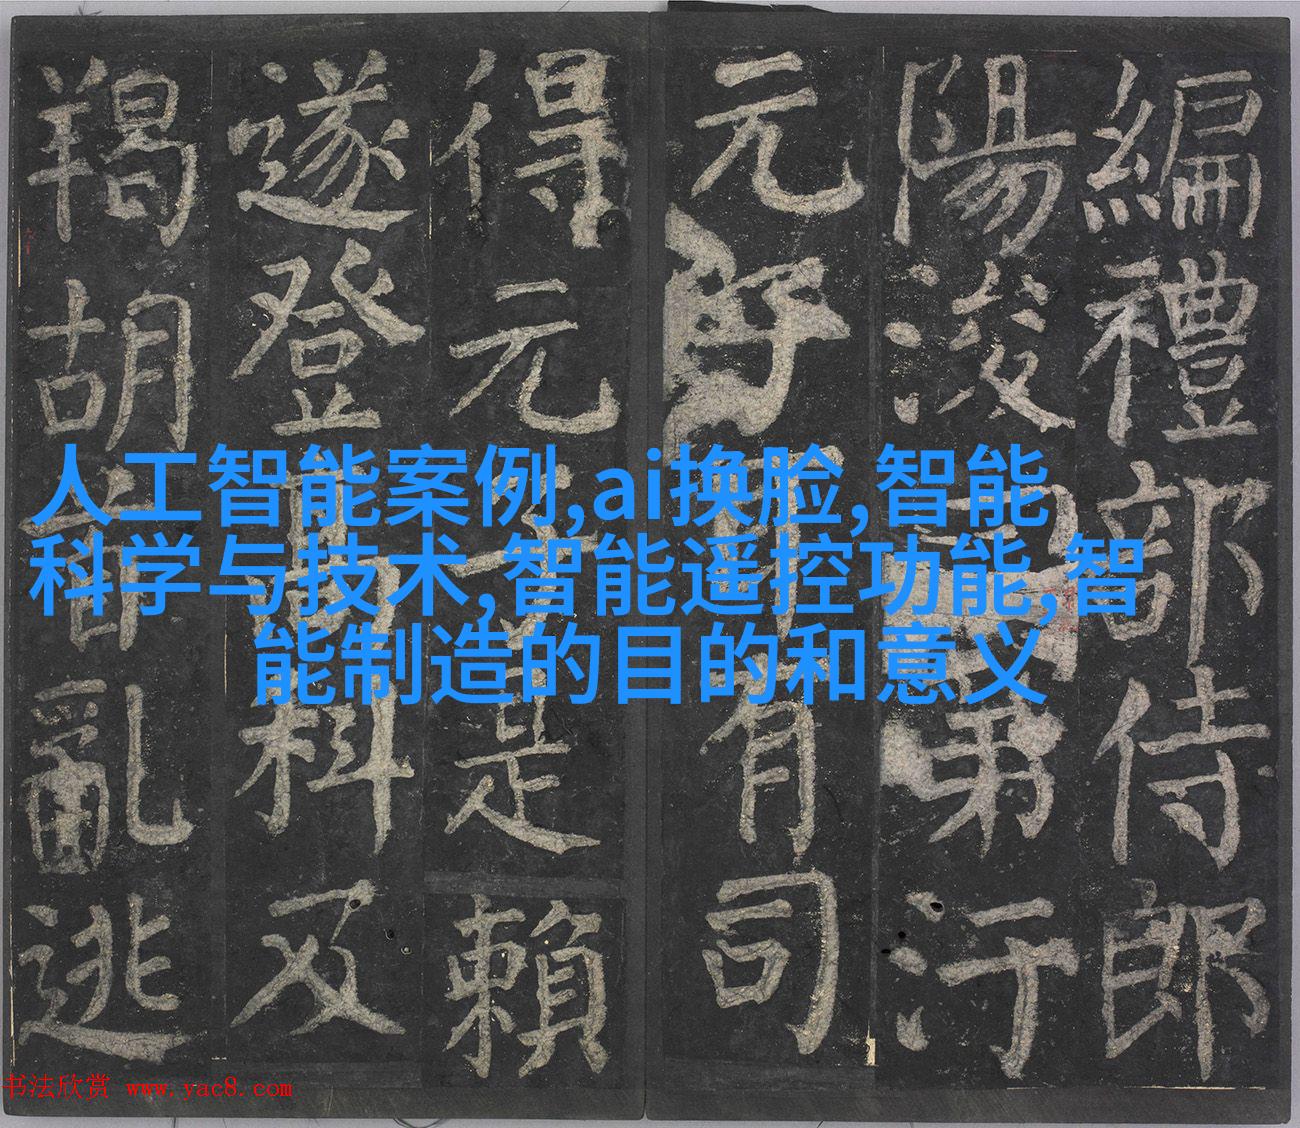 人工智能案例,ai换脸,智能
科学与技术,智能遥控功能,智
能制造的目的和意义
編禮部侍郎
陽浚弟汙
元子有司
得元是賴
遂登科及
羯胡首亂逃
书法欣赏 www.yac8.com